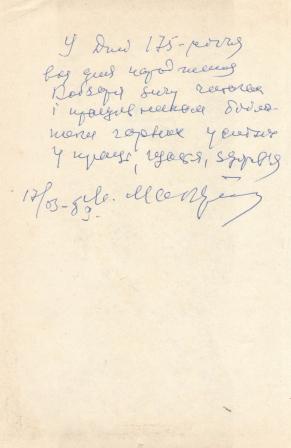 У Дні 175-річчя
від дня народження
Кобзаря бажу читачам
і працівникам бібліо-
теки гарних успіхів
у праці, щастя, здоров'я
17/03-89.